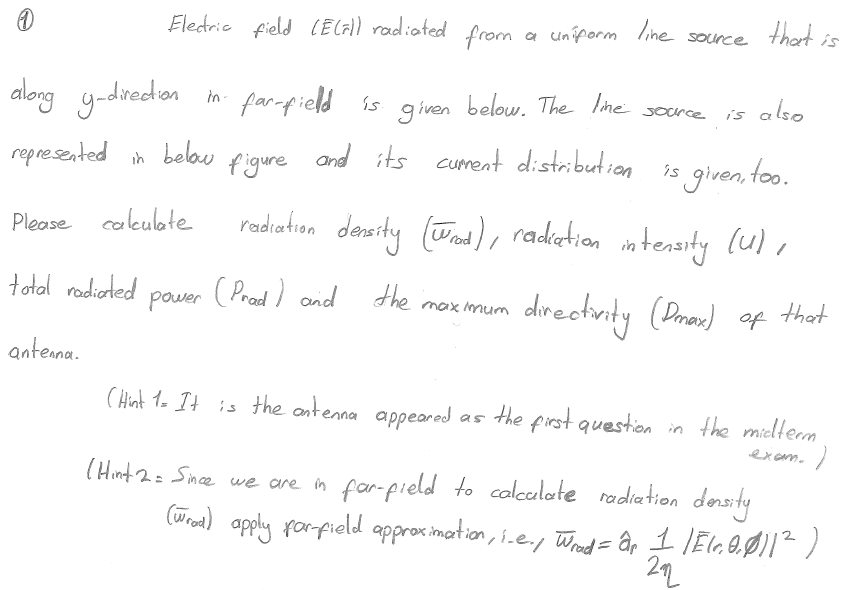 ① Electric field (Ē(r̄)) radiated from a uniform line source that is
along y-direction in far-field is given below. The line source is also
represented in below figure and its current distribution is given, too.
Please calculate radiation density (W̄rad), radiation intensity (U),
total radiated power (Prad) and the maximum directivity (Dmax) of that
antenna.
(Hint 1= It is the antenna appeared as the first question in the midterm
exam.)
(Hint 2= Since we are in far-field to calculate radiation density
(W̄rad) apply far-field approximation, i.e., W̄rad = âr 1/2η |Ē(r,θ,Ø)|² )